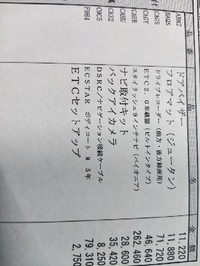 品番
品名
金額
ドアバイザー 11,220
フロアマット(ジュータン) 11,880
ドライブレコーダー(前方・後方録画用) 71,720
ETC2.0車載器(ビルトインタイプ) 46,640
スタイリッシュ9インチナビ(パイオニア) 262,460
ナビ取付キット 28,600
バックアイカメラ 35,420
DSRC/ナビゲーション接続ケーブル 8,250
ECSTAR ボディコート M 5年 79,310
ETCセットアップ 2,750